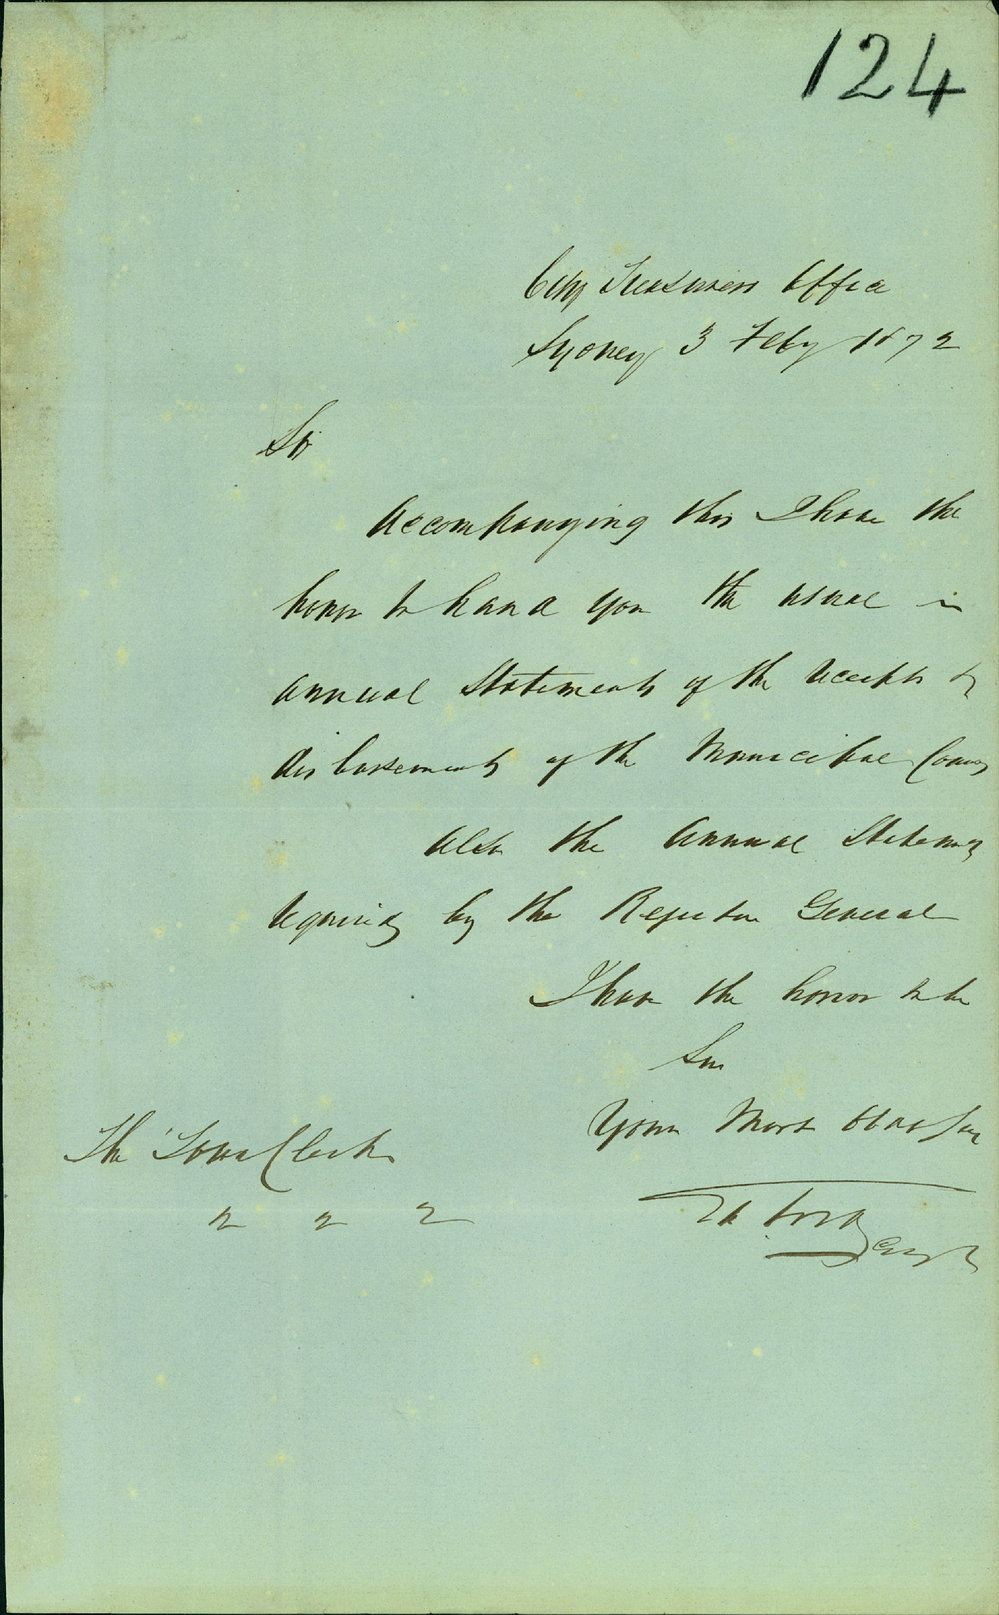 124
City Treasurers Office
Sydney 3 Feby 1872
Sir
Accompanying this I have the
honor to hand you the usual
annual Statements of the receipts &
disbursements of the Municipal Council
Also the Annual Statement
required by the Register General
I have the honor to be
Sir
Your Most Obed Ser
The Town Clerk